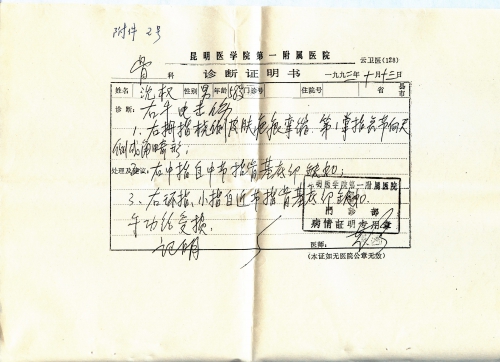 附件 2号
昆明医学院第一附属医院
云卫医(128)
骨 科 诊断证明书 一九九二年十月十二日
姓名 沈权 性别 男 年龄 门诊号 住院号 省 县市
诊断: 右手电击伤
1、右拇指桡侧皮肤疤痕挛缩,第1掌指关节向尺
侧成角畸形;
处理及建议: 2、右中指自中节指骨基底部缺如;
3、右环指、小指自近节指骨基底部缺如.
手功能受损,
证明
昆明医学院第一附属医院
门诊部
病情证明专用章
医师:
(本证如无医院公章无效)